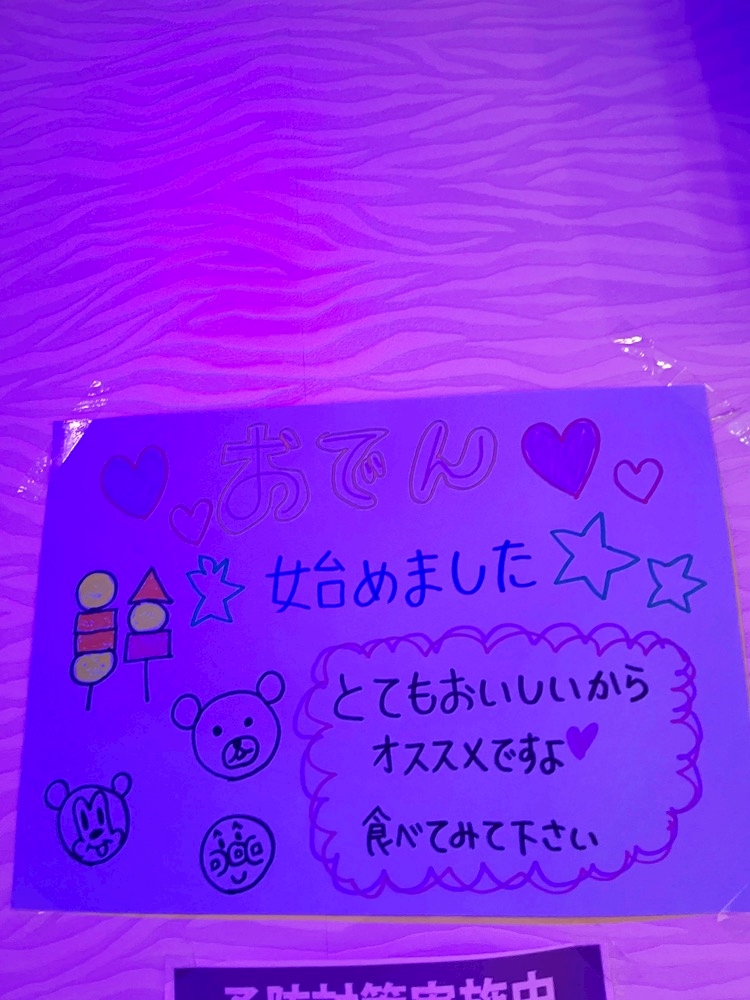 おでん
始めました
とてもおいしいから
オススメですよ
食べてみて下さい
予防対策実施中